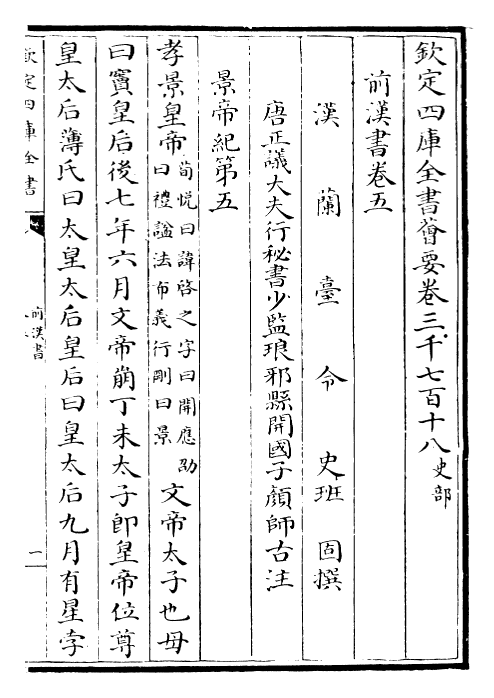 欽定四庫全書薈要卷三千七百十八史部
前漢書卷五
漢蘭臺令史班固撰
唐正議大夫行秘書少監琅邪縣開國子顔師古注
景帝紀第五
孝景皇帝荀悦曰諱啓之字曰開應劭曰禮諡法布義行剛曰景文帝太子也母
曰竇皇后後七年六月文帝崩丁未太子即皇帝位尊
皇太后薄氏曰太皇太后皇后曰皇太后九月有星孛
欽定四庫全書
前漢書
一